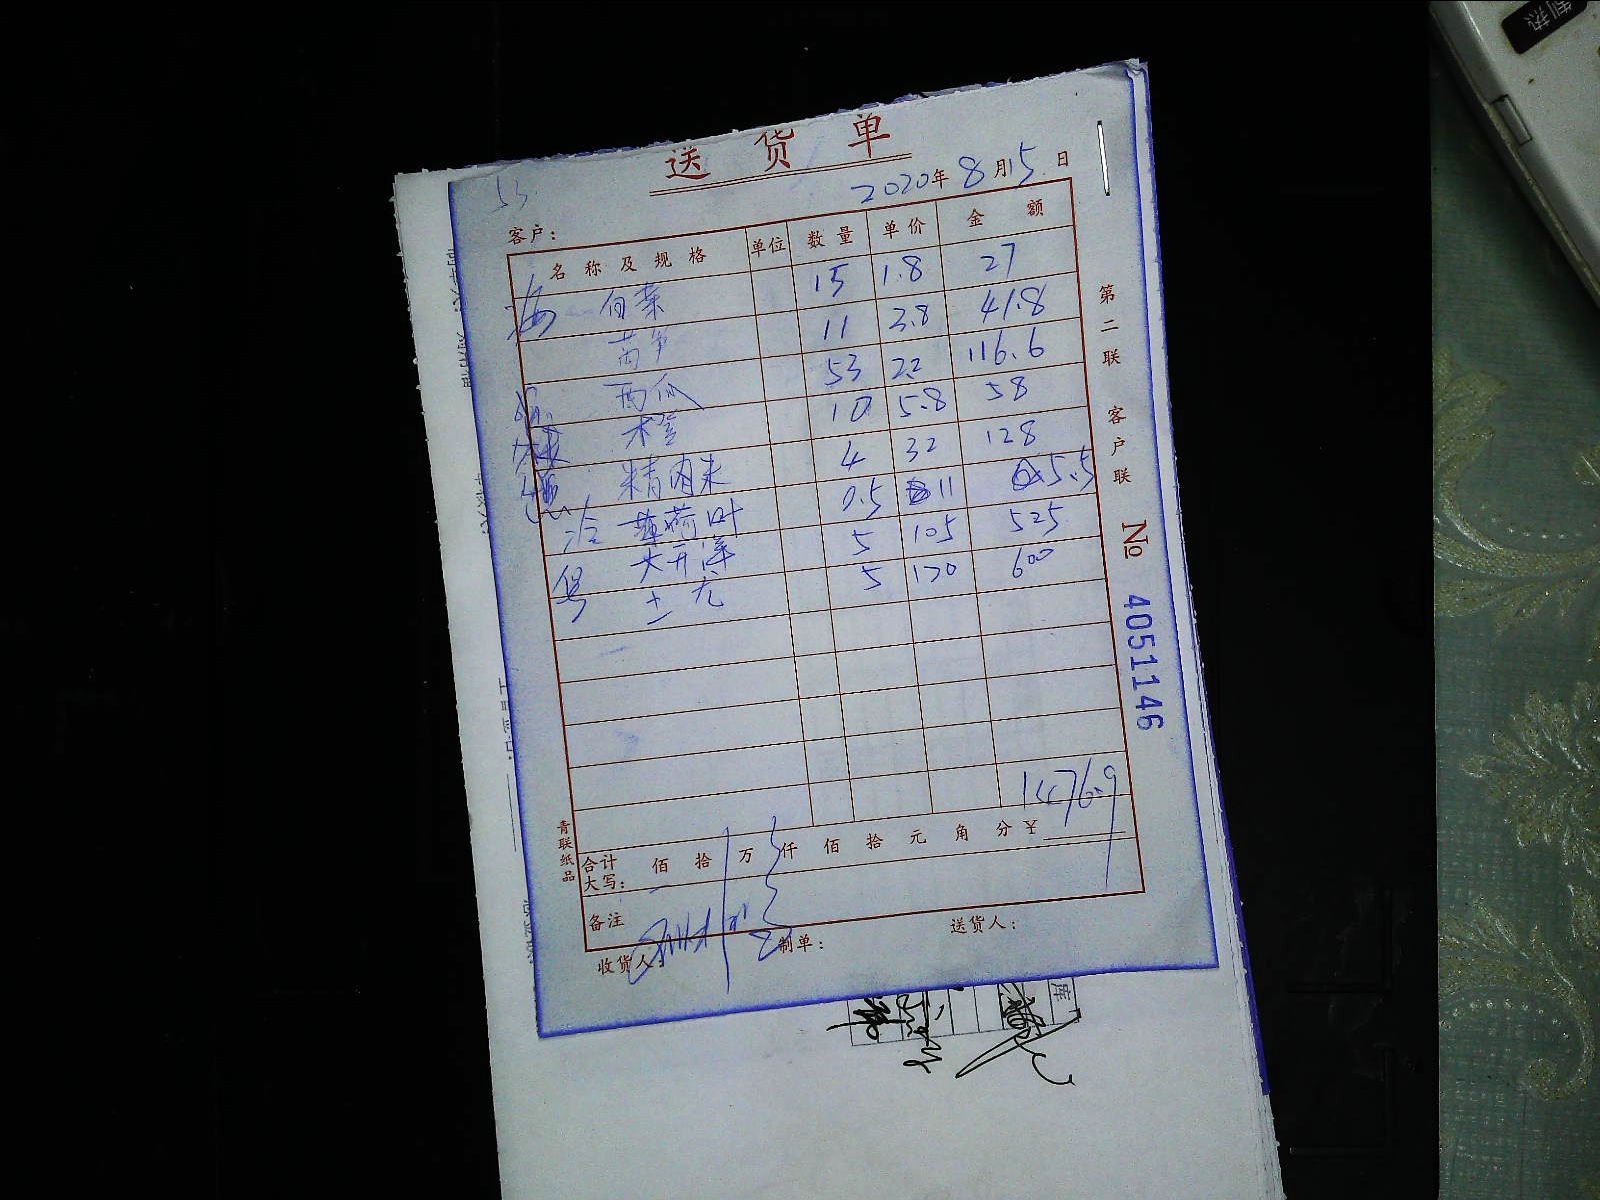 制热
送货单
53
2020年8月15日
客户：
名称及规格 单位 数量 单价 金额
白菜 15 1.8 27
莴笋 11 3.8 41.8
西瓜 53 2.2 116.6
10 5.8 58
精肉末 4 32 128
冷 薄荷叶 0.5 11 5.5
大开洋 5 105 525
土尤 5 120 600
1476.9
合计大写： 佰 拾 万 仟 佰 拾 元 角 分 ￥
备注
收货人： 制单： 送货人：
第二联 客户联
№ 4051146
青联纸品
库